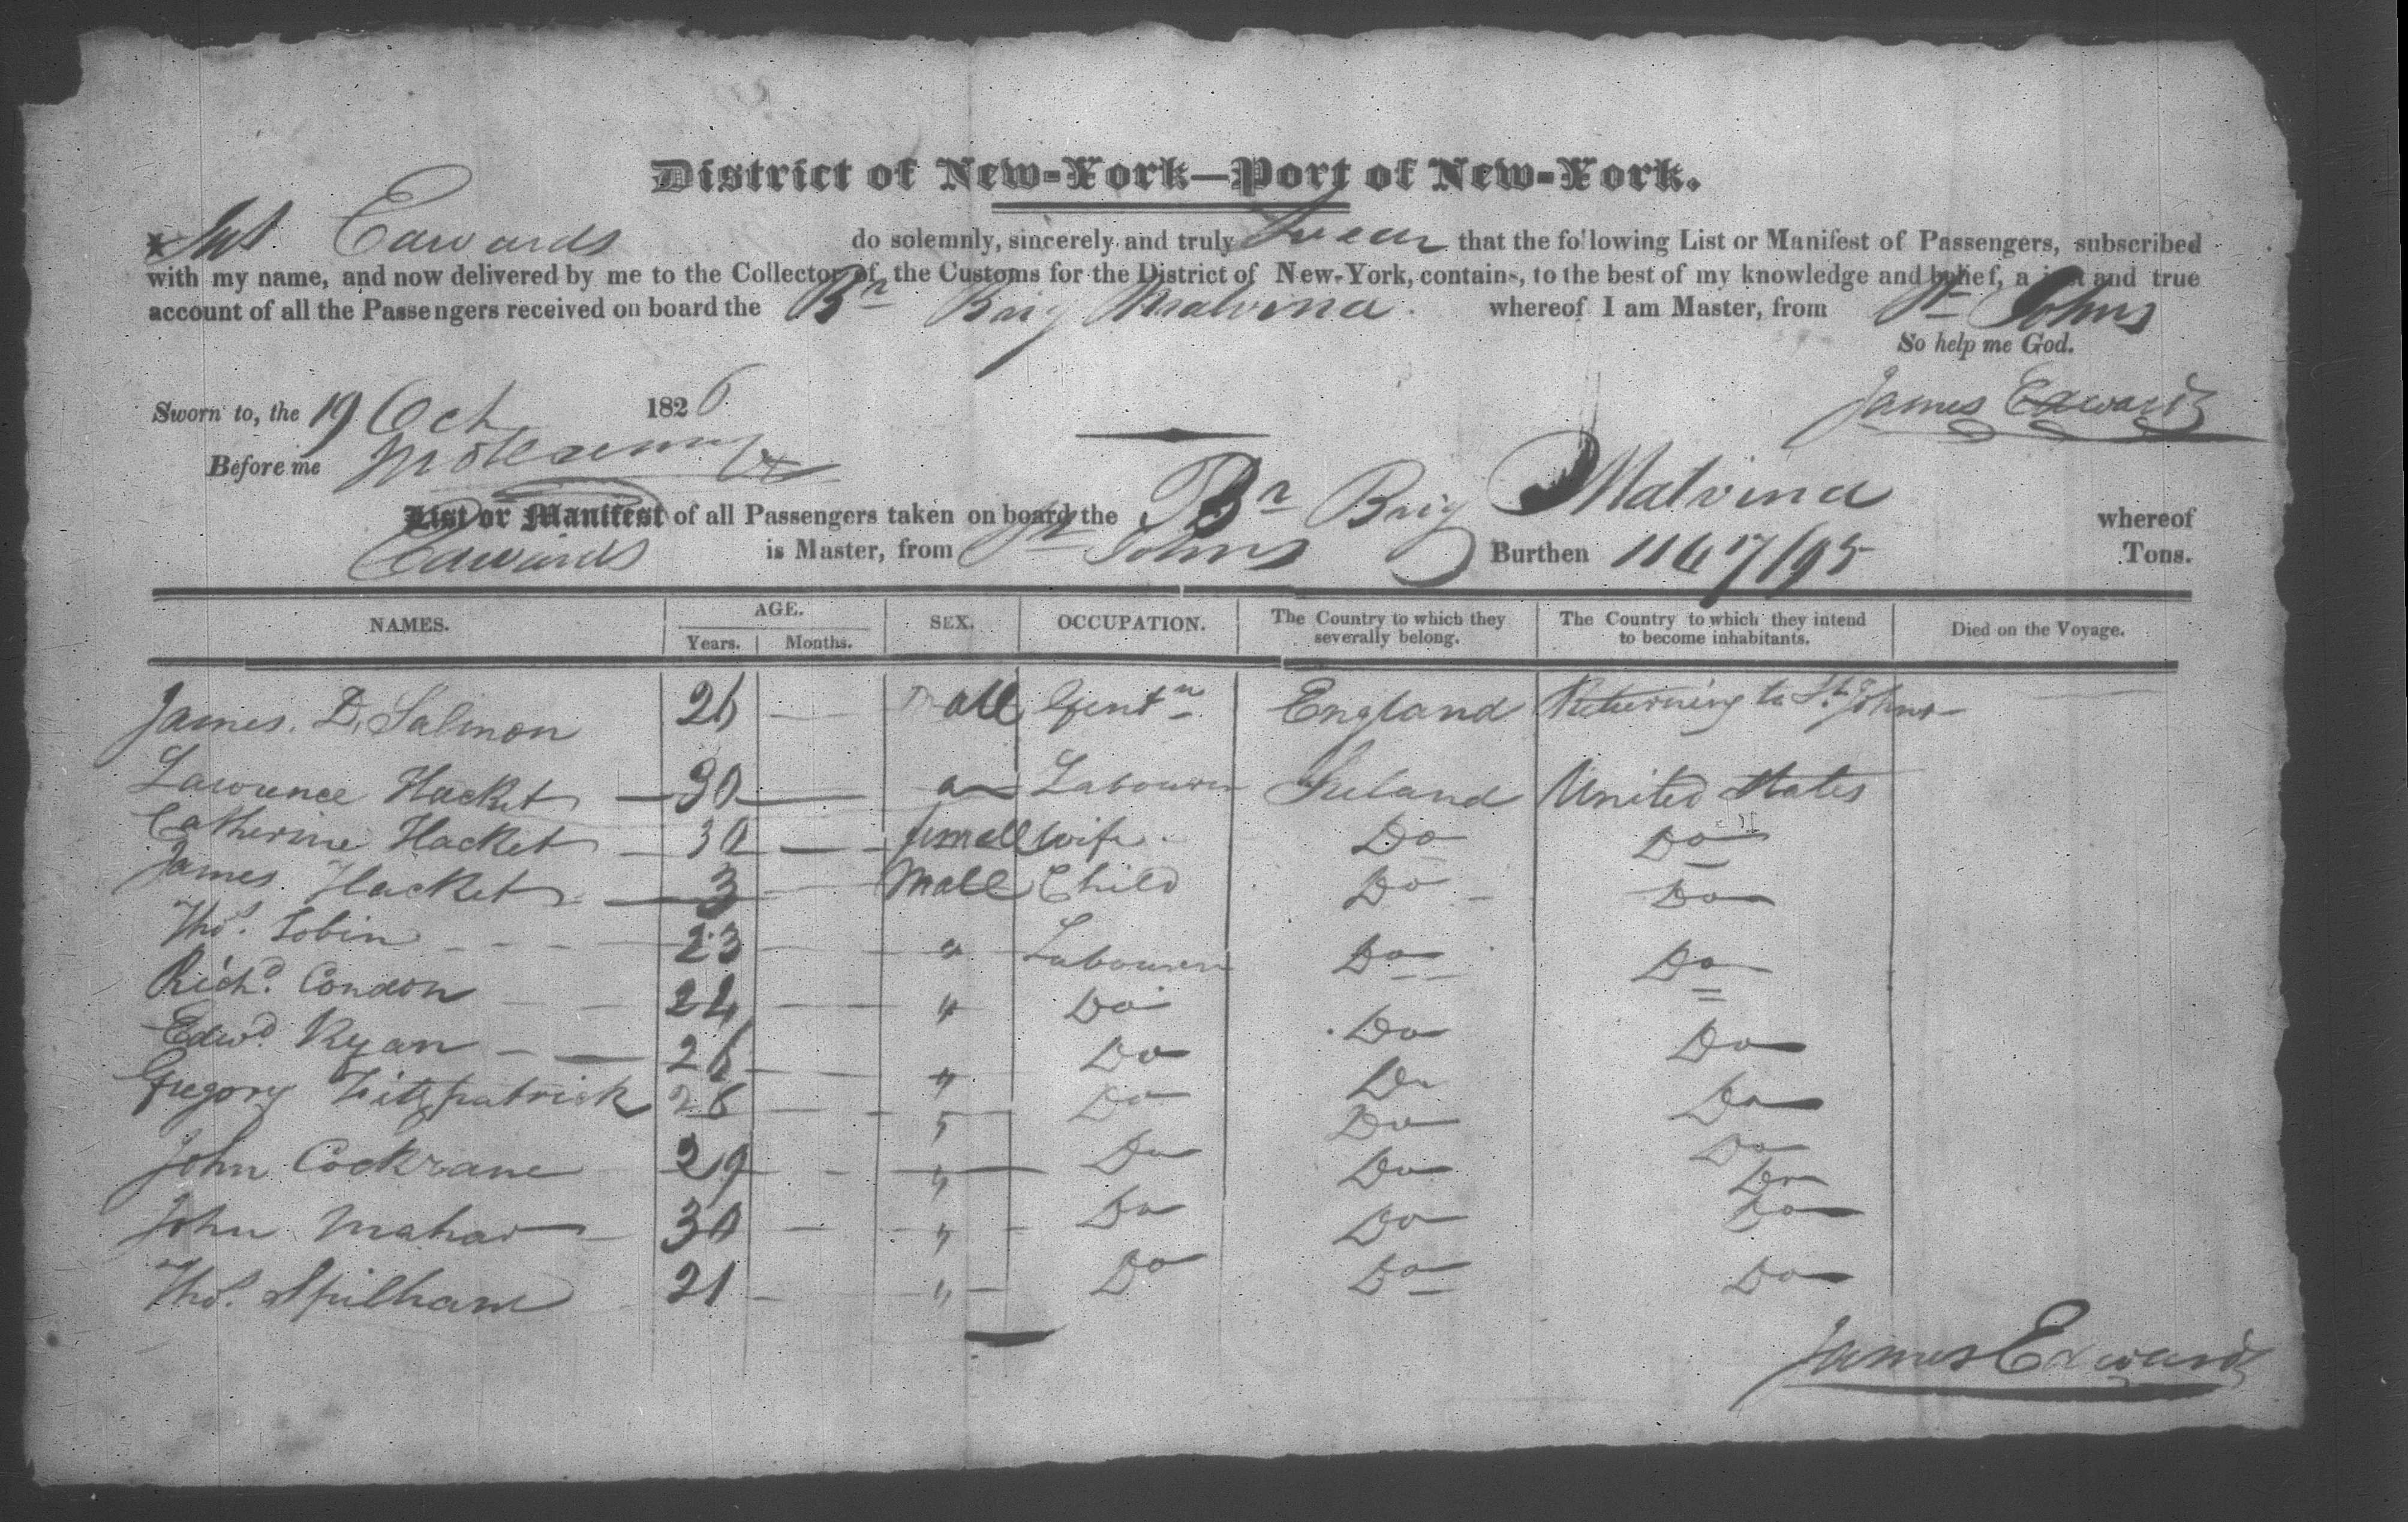 District of New-York—Port of New-York.
I Jas Edwards do solemnly, sincerely and truly Swear that the following List or Manifest of Passengers, subscribed
with my name, and now delivered by me to the Collector of the Customs for the District of New-York, contains, to the best of my knowledge and belief, a just and true
account of all the Passengers received on board the Br Brig Malvina whereof I am Master, from St Johns
So help me God.
James Edwards
Sworn to, the 19 Oct 1826
Before me
List or Manifest of all Passengers taken on board the Br Brig Malvina whereof
Edwards is Master, from St Johns Burthen 116 17/95 Tons.
NAMES. AGE. SEX. OCCUPATION. The Country to which they severally belong. The Country to which they intend to become inhabitants. Died on the Voyage.
Years. Months.
James. D. Salmon 26 — Male Gentn England Returning to St Johns —
Lawrence Hacket — 30 — " Labourer Ireland United States
Catherine Hacket — 30 — femall wife Do Do
James Hacket — 3 — Male Child Do Do
Thos. Tobin - - - 23 — " Labourer Do Do
Richd. Condon — 24 — " Do Do Do
Edwd. Ryan — 26 — " Do Do Do
Gregory Fitzpatrick 26 — " Do Do Do
John Cockrane 29 — " Do Do Do
John Mahar — 30 — " Do Do Do
Thos. Spilham 21 — " Do Do Do
James Edwards